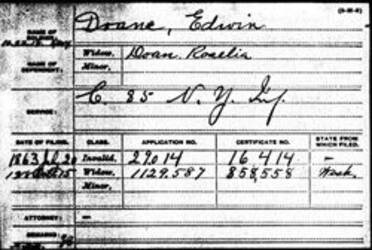 (3-36-6)
NAME OF SOLDIER: Doane, Edwin
NAME OF DEPENDENT: Widow, Doan Roselia
Minor,
SERVICE: C. 85 N. Y. Inf.
DATE OF FILING. CLASS. APPLICATION NO. CERTIFICATE NO. STATE FROM WHICH FILED.
1863 Jul 20 Invalid, 29014 16414 —
15 Widow, 1129.587 858,558 Wash.
Minor,
ATTORNEY: —
REMARKS: